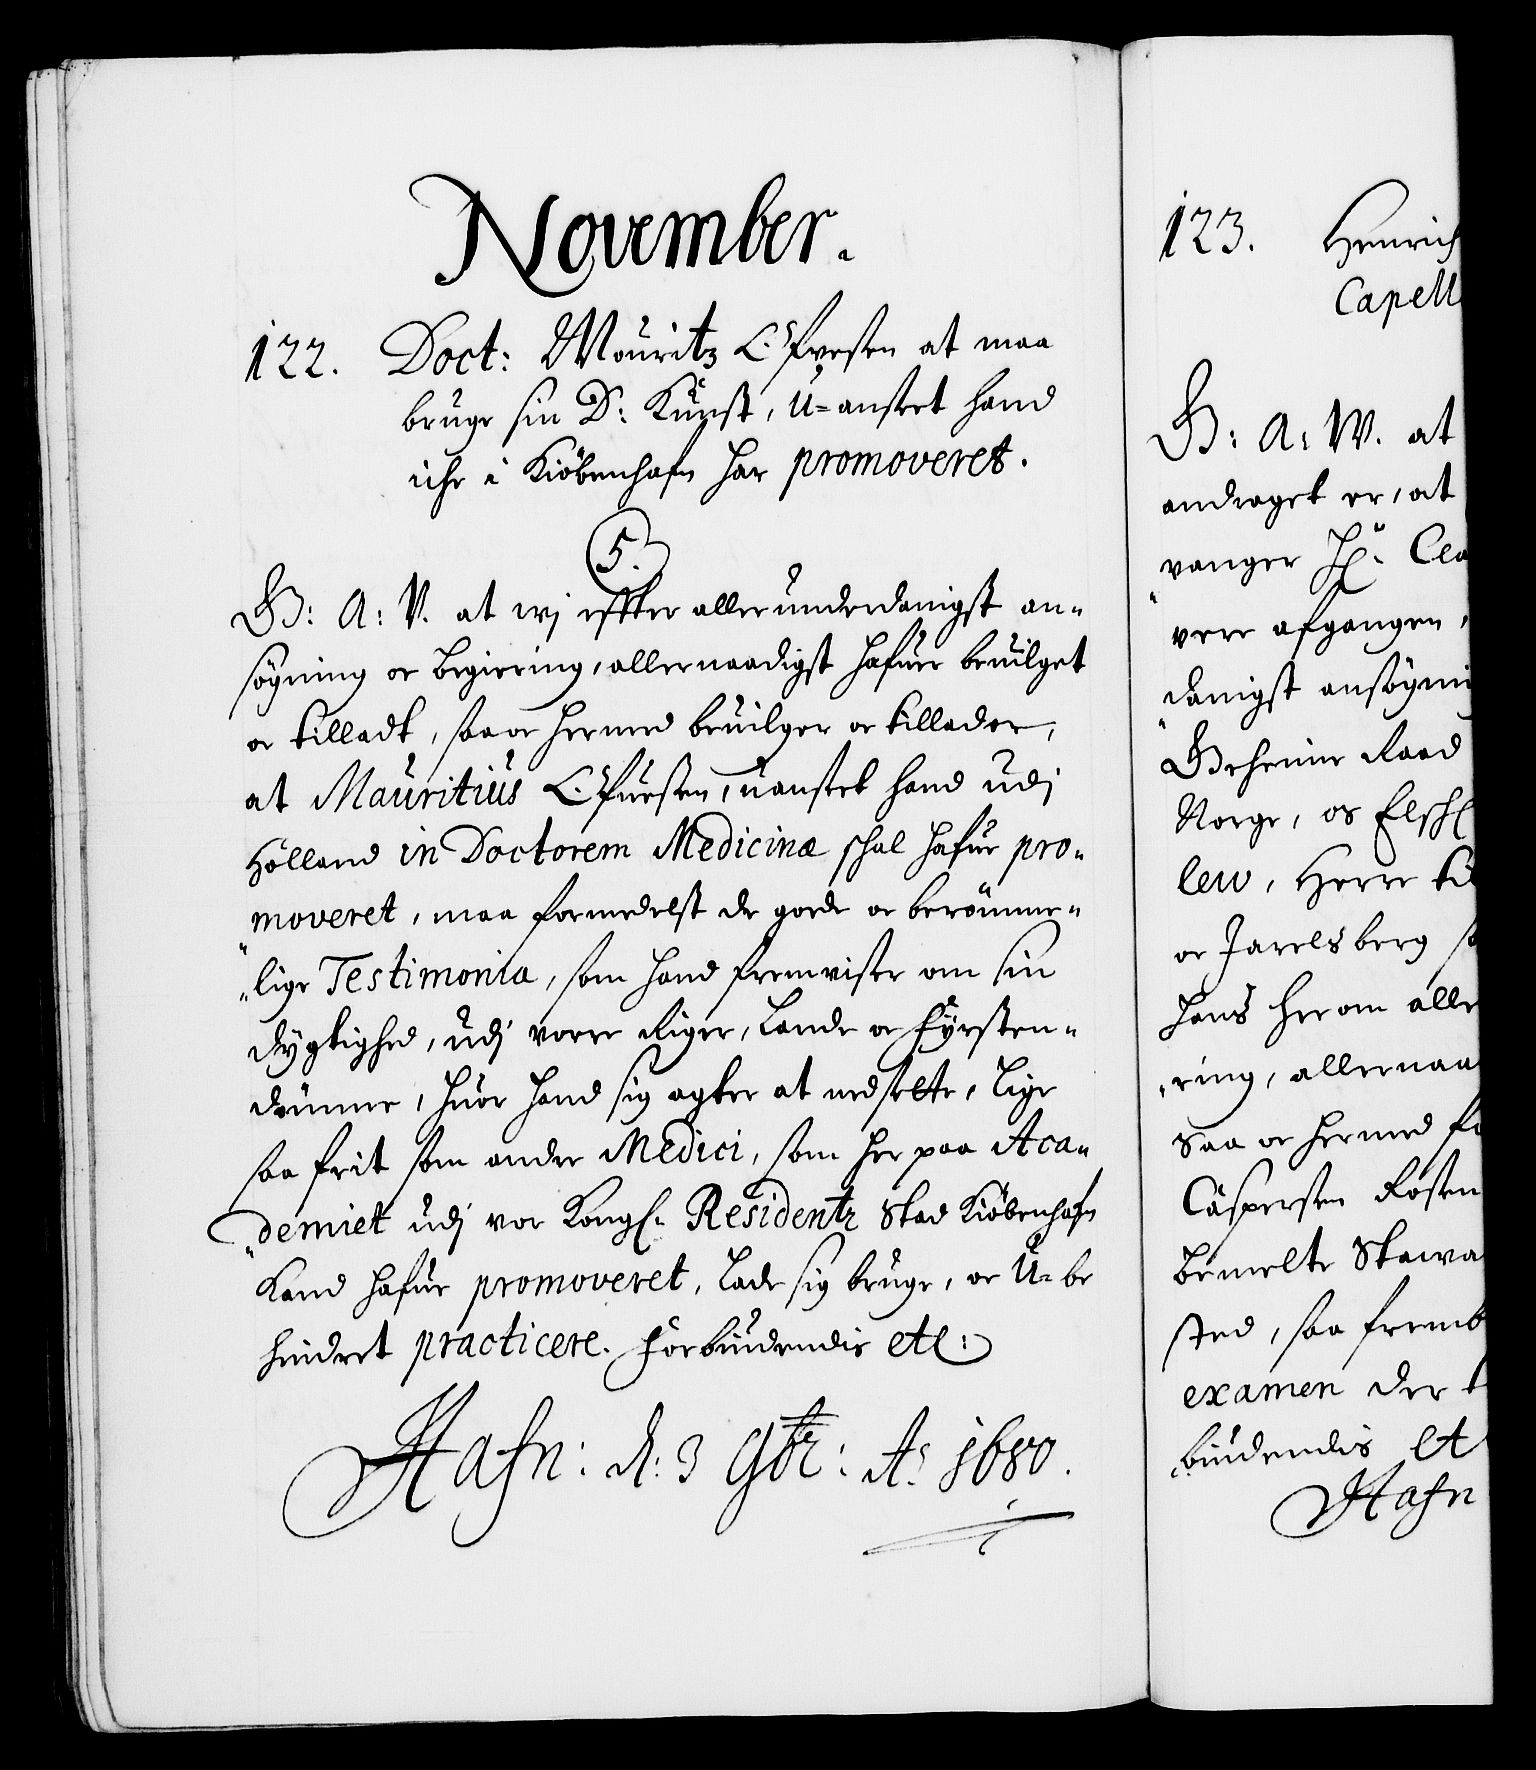 November.
122. Doct: Mouritz at maa
bruge sin D: Kunst, U=anseet hand
iche i Kiöbenhafn har promoveret.
5.
G: A: V. at wj effter allerunderdanigst an=
søgning oc begiering, allernaadigst hafuer beuilget
oc tilladt, saa oc hermed beuilger oc tillader,
at Mauritius uanseet hand udj
Holland in Doctorem Medicinæ schal hafue pro=
moveret, maa formedelst de gode oc berömme=
"lige Testimonia, som hand fremviser om sin
dygtighed, udj vore Riger, Lande oc Fyrsten=
dömme, huor hand sig agter at nedsette, lige
saa frit som andre Medici, som her paa Aca=
"demiet udj vor Kongl. Residentz Stad Kiöbenhafn
kand hafue promoveret, lade sig bruge, oc U=be
hindret practicere. Forbiudendis etc:
Hafn: d: 3 9br: Ao 1680.
123. Henrich
Capell
G: A: W. at
andraget er, at
vanger Cla
vere afgangen,
danigst ansøgni
Geheime Raad
Norge, os Elsch
lew, Herre ti
oc Jarelsberg s
hans herom alle
"ring, allernaa
Saa oc hermed f
Caspersen Rosen
bemelte Stawa
sted, saa fremb
examen der t
biudendis et
Hafn